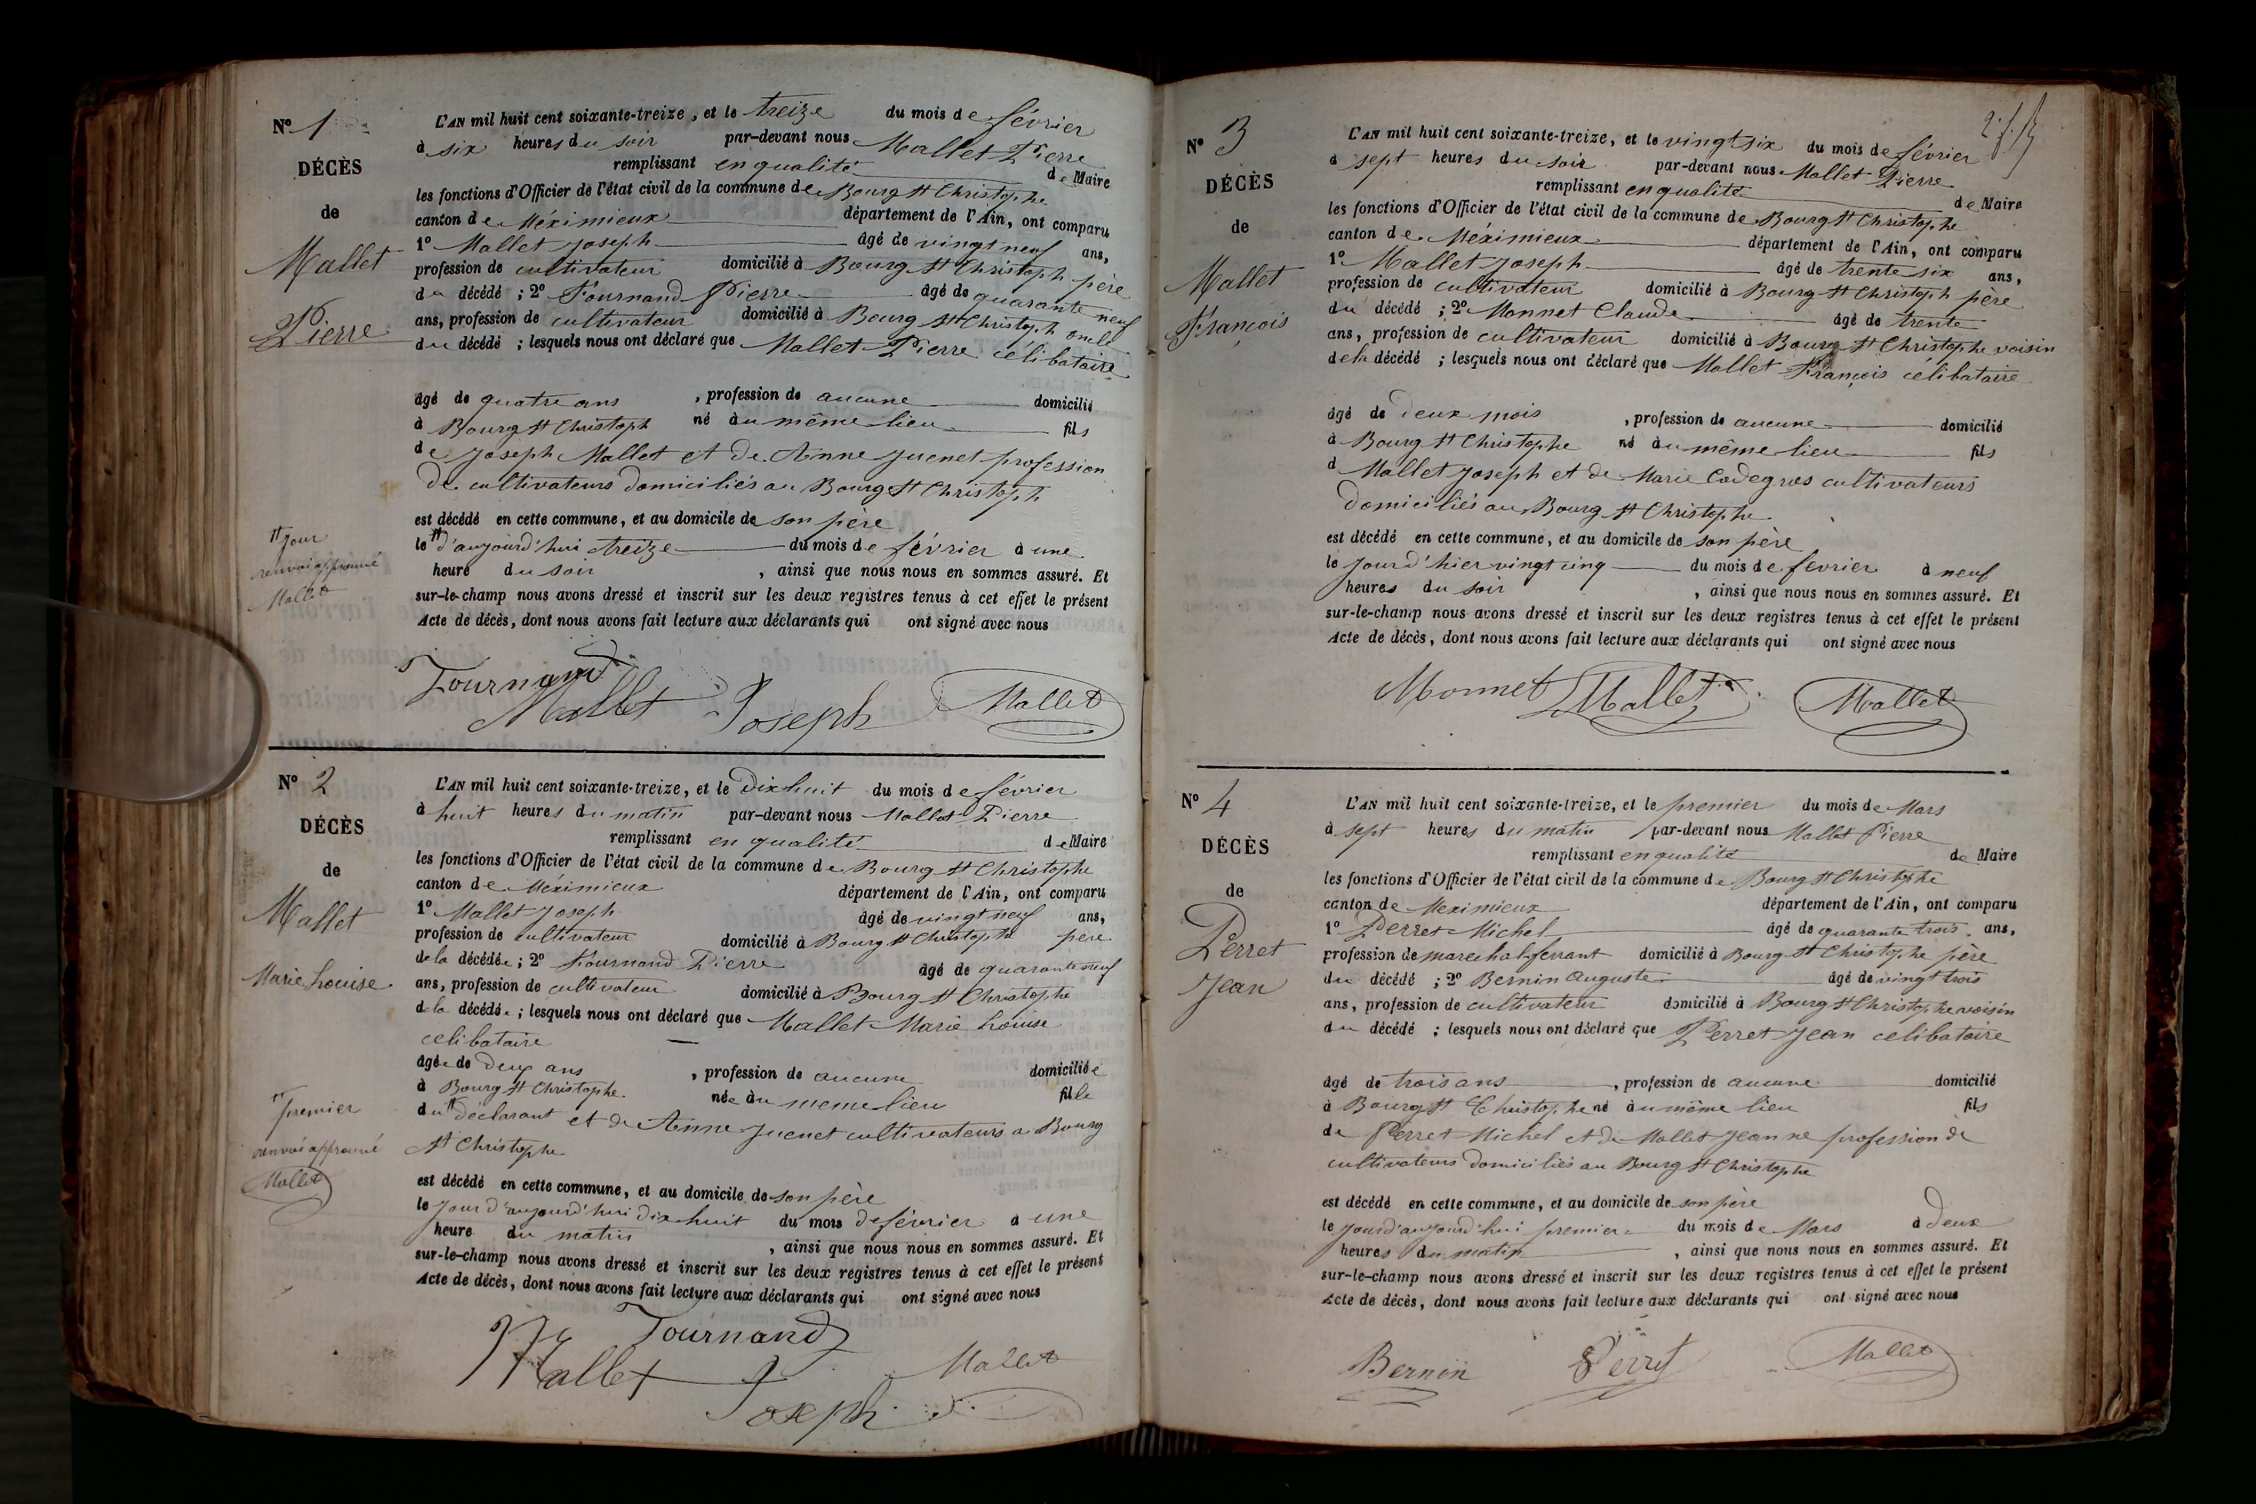 N° 1
DÉCÈS
de
Mallet
Pierre
L'AN mil huit cent soixante-treize, et le treize du mois de février
à six heures du soir par-devant nous Mallet Pierre
remplissant en qualité de Maire
les fonctions d'Officier de l'état civil de la commune de Bourg St Christophe
canton de Méximieux département de l'Ain, ont comparu
1° Mallet Joseph âgé de vingt neuf ans,
profession de cultivateur domicilié à Bourg St Christoph père
du décédé ; 2° Tournand Pierre âgé de quarante neuf
ans, profession de cultivateur domicilié à Bourg St Christoph oncle
du décédé ; lesquels nous ont déclaré que Mallet Pierre célibataire
âgé de quatre ans , profession de aucune domicilié
à Bourg St Christoph né au même lieu fils
de Joseph Mallet et de Anne Juenet profession
de cultivateurs domiciliés au Bourg St Christoph
est décédé en cette commune, et au domicile de son père
le d'aujourd'hui treize du mois de février à une
heure du soir , ainsi que nous nous en sommes assuré. Et
sur-le-champ nous avons dressé et inscrit sur les deux registres tenus à cet effet le présent
Acte de décès, dont nous avons fait lecture aux déclarants qui ont signé avec nous
jour
renvoi approuvé
Mallet
Tournand
Mallet Joseph Mallet
N° 2
DÉCÈS
de
Mallet
Marie Louise
L'AN mil huit cent soixante-treize, et le dix huit du mois de février
à huit heures du matin par-devant nous Mallet Pierre
remplissant en qualité de Maire
les fonctions d'Officier de l'état civil de la commune de Bourg St Christophe
canton de Méximieux département de l'Ain, ont comparu
1° Mallet Joseph âgé de vingt neuf ans,
profession de cultivateur domicilié à Bourg St Christophe père
de la décédée ; 2° Tournand Pierre âgé de quarante neuf
ans, profession de cultivateur domicilié à Bourg St Christophe
de la décédée ; lesquels nous ont déclaré que Mallet Marie Louise
celibataire
âgée de deux ans , profession de aucune domiciliée
à Bourg St Christophe née au meme lieu fille
du déclarant et de Anne Juenet cultivateurs à Bourg
St Christophe
est décédé en cette commune, et au domicile de son père
le jour d'aujourd'hui dix huit du mois de février à une
heure du matin , ainsi que nous nous en sommes assuré. Et
sur-le-champ nous avons dressé et inscrit sur les deux registres tenus à cet effet le présent
Acte de décès, dont nous avons fait lecture aux déclarants qui ont signé avec nous
premier
renvoi approuvé
Mallet
Tournand
Mallet Joseph Mallet
N° 3
DÉCÈS
de
Mallet
François
L'AN mil huit cent soixante-treize, et le vingt six du mois de février
à sept heures du soir par-devant nous Mallet Pierre
remplissant en qualité de Maire
les fonctions d'Officier de l'état civil de la commune de Bourg St Christophe
canton de Méximieux département de l'Ain, ont comparu
1° Mallet Joseph âgé de trente six ans,
profession de cultivateur domicilié à Bourg St Christoph père
du décédé ; 2° Monnet Claude âgé de trente
ans, profession de cultivateur domicilié à Bourg St Christophe voisin
de la décédé ; lesquels nous ont déclaré que Mallet François célibataire
âgé de deux mois , profession de aucune domicilié
à Bourg St Christophe né au même lieu fils
d Mallet Joseph et de Marie Cadegros cultivateurs
domiciliés au Bourg St Christophe
est décédé en cette commune, et au domicile de son père
le jour d'hier vingt cinq du mois de fevrier à neuf
heures du soir , ainsi que nous nous en sommes assuré. Et
sur-le-champ nous avons dressé et inscrit sur les deux registres tenus à cet effet le présent
Acte de décès, dont nous avons fait lecture aux déclarants qui ont signé avec nous
Monnet Mallet Mallet
N° 4
DÉCÈS
de
Perret
Jean
L'AN mil huit cent soixante-treize, et le premier du mois de Mars
à sept heures du matin par-devant nous Mallet Pierre
remplissant en qualité de Maire
les fonctions d'Officier de l'état civil de la commune de Bourg St Christophe
canton de Meximieux département de l'Ain, ont comparu
1° Perret Michel âgé de quarante trois ans,
profession de marechal ferrant domicilié à Bourg St Christophe père
du décédé ; 2° Bernin Auguste âgé de vingt trois
ans, profession de cultivateur domicilié à Bourg St Christophe voisin
du décédé ; lesquels nous ont déclaré que Perret Jean celibataire
âgé de trois ans , profession de aucune domicilié
à Bourg St Christophe né au même lieu fils
de Perret Michel et de Mallet Jeanne profession de
cultivateurs domiciliés au Bourg St Christophe
est décédé en cette commune, et au domicile de son père
le jour d'aujourd'hui premier du mois de Mars à deux
heures du matin , ainsi que nous nous en sommes assuré. Et
sur-le-champ nous avons dressé et inscrit sur les deux registres tenus à cet effet le présent
Acte de décès, dont nous avons fait lecture aux déclarants qui ont signé avec nous
Bernin Perret Mallet